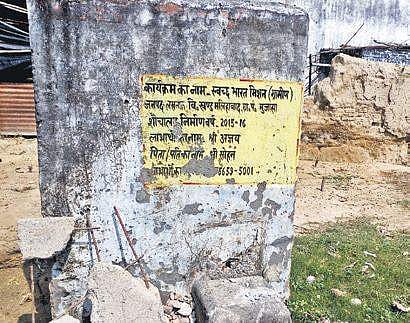 कार्यक्रम का नाम - स्वच्छ भारत मिशन (ग्रामीण)
जनपद - लखनऊ वि. खण्ड मलिहाबाद, ग्रा. पं. मुजासा
शौचालय निर्माण वर्ष 2015-16
लाभार्थी का नाम श्री अजय
पिता/पति का नाम श्री सोहन
5659-5001